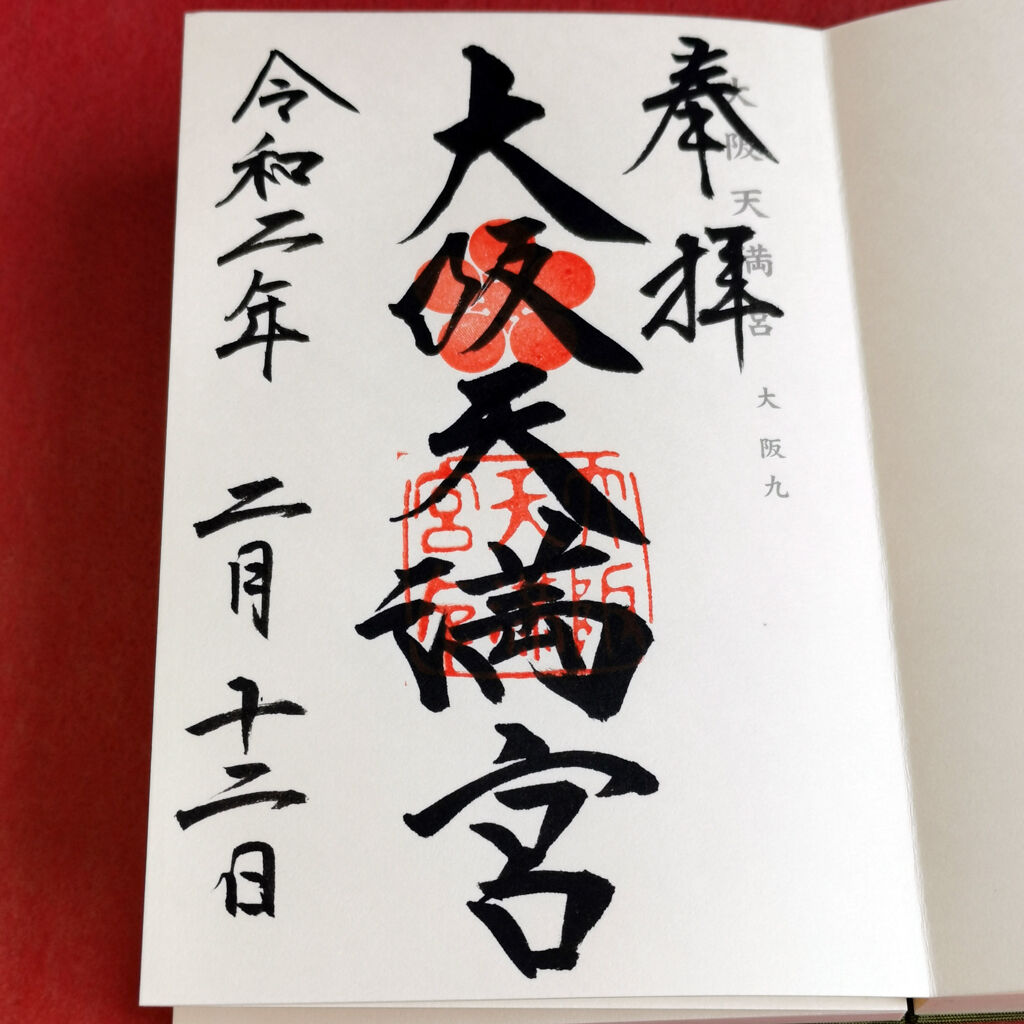 奉拝
大阪天満宮
大阪九
大阪天満宮
令和二年 二月 十二日
大阪天満宮